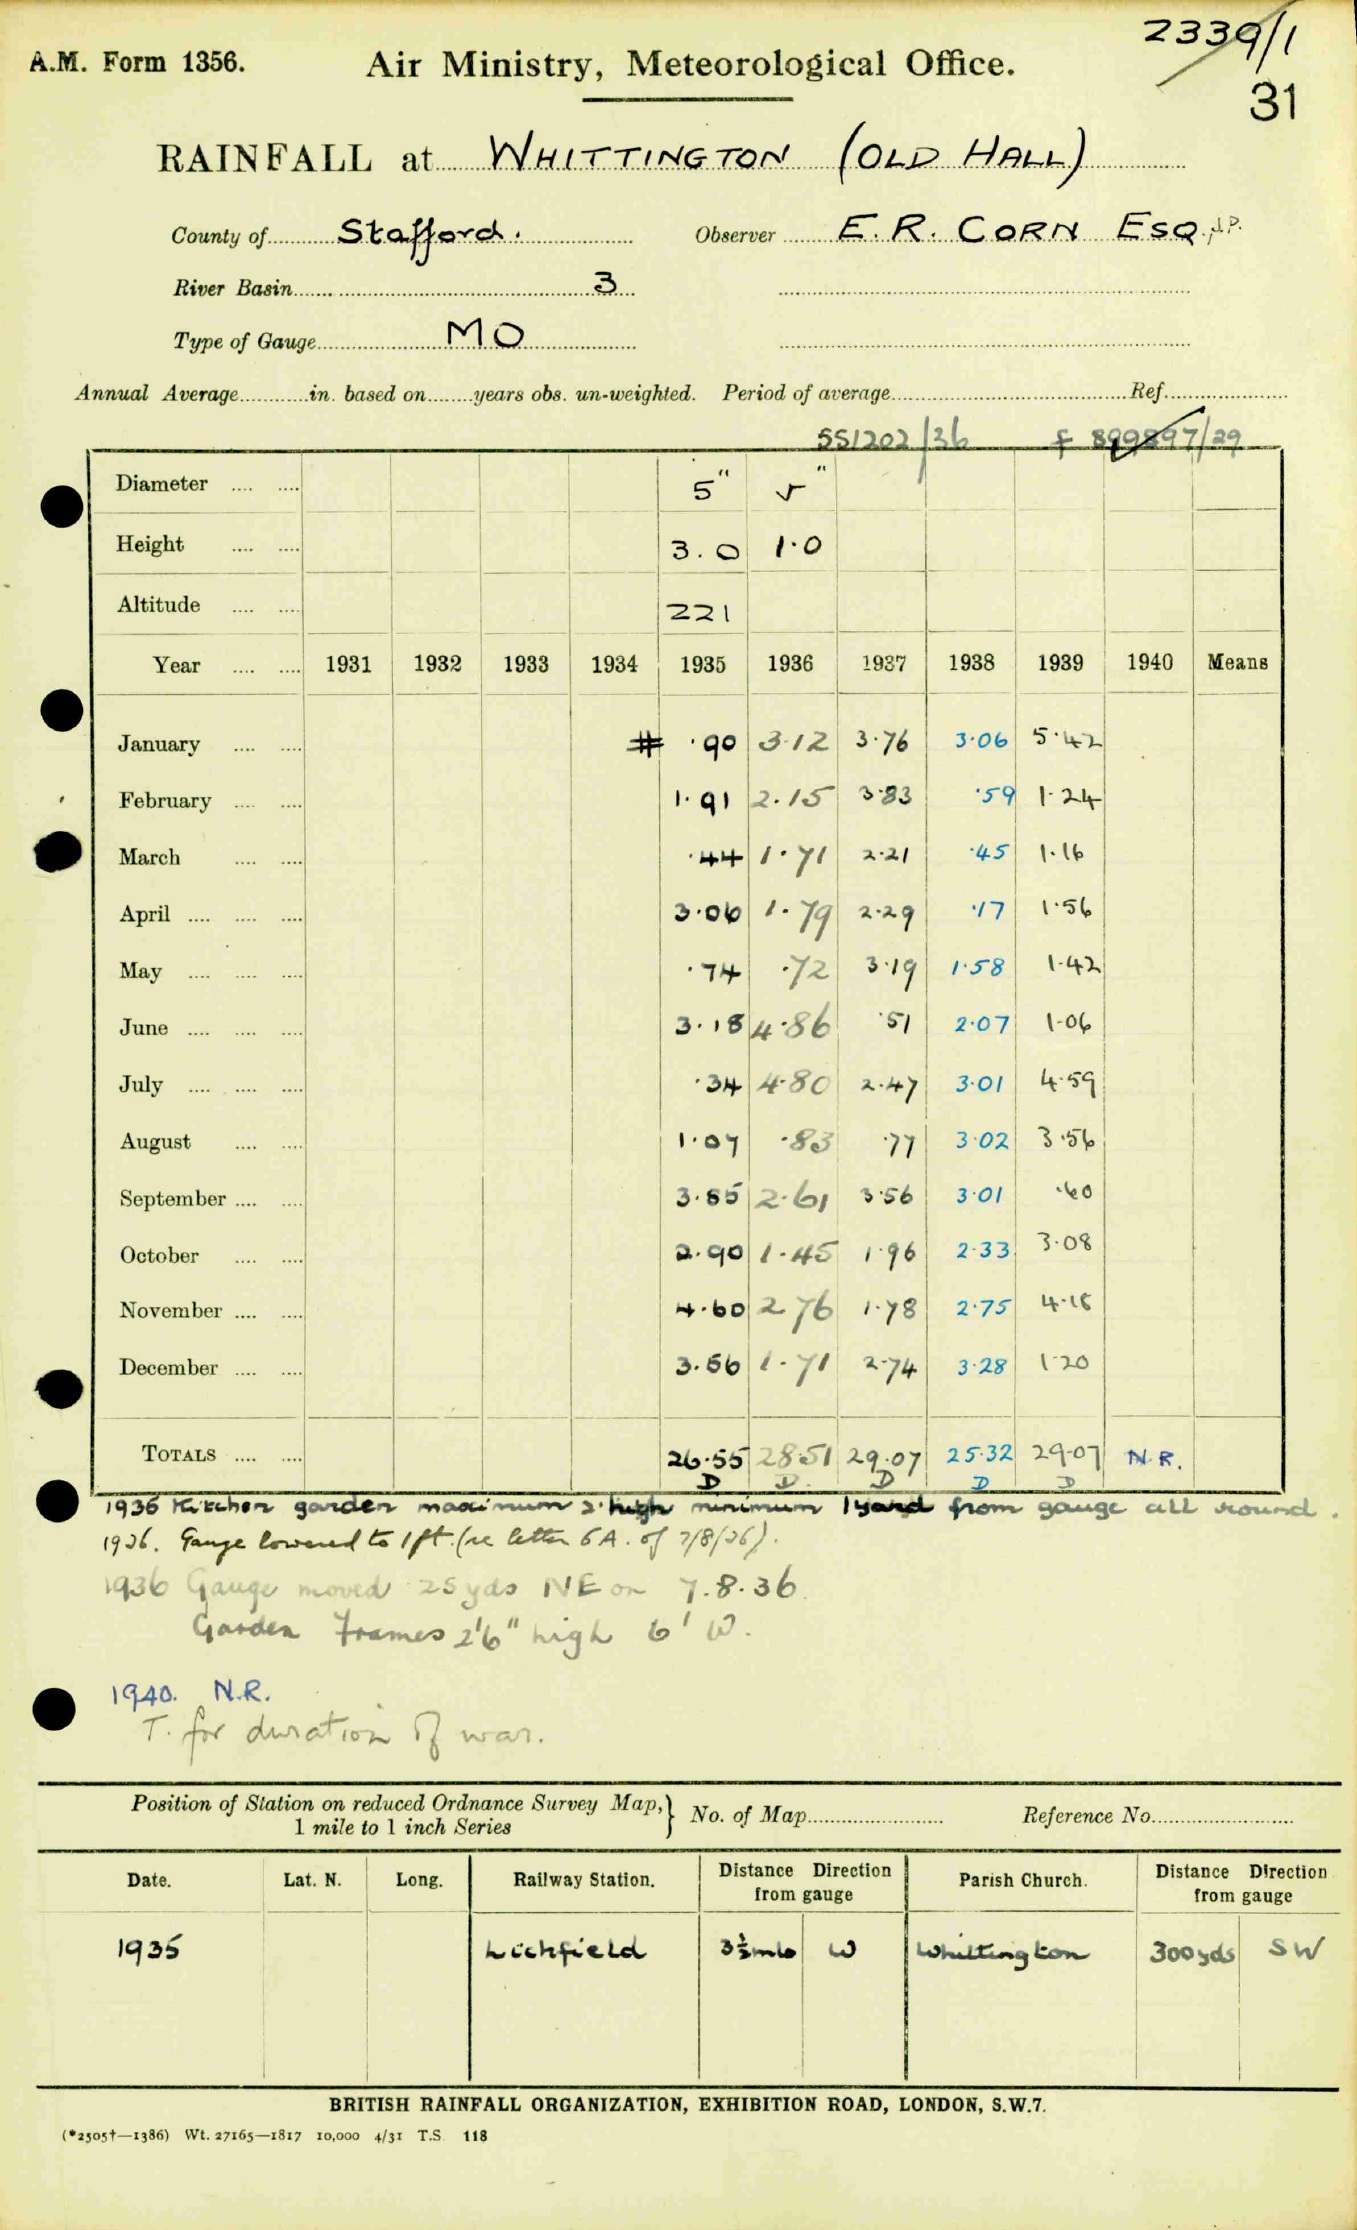 2339/1
A.M. Form 1356. Air Ministry, Meteorological Office.
31
RAINFALL at WHITTINGTON (OLD HALL)
County of Stafford. Observer E. R. CORN ESQ. J.P.
River Basin 3
Type of Gauge MO
Annual Average in. based on years obs. un-weighted. Period of average Ref.
SS1202/36 f 899897/29
Diameter 5" 5"
Height 3.0 1.0
Altitude 221
Year 1931 1932 1933 1934 1935 1936 1937 1938 1939 1940 Means
January # .90 3.12 3.76 3.06 5.42
February 1.91 2.15 3.83 .59 1.24
March .44 1.71 2.21 .45 1.16
April 3.06 1.79 2.29 .17 1.56
May .74 .72 3.19 1.58 1.42
June 3.18 4.86 .51 2.07 1.06
July .34 4.80 2.47 3.01 4.59
August 1.07 .83 .77 3.02 3.56
September 3.85 2.61 3.56 3.01 .60
October 2.90 1.45 1.96 2.33 3.08
November 4.60 2.76 1.78 2.75 4.18
December 3.56 1.71 2.74 3.28 1.20
TOTALS 26.55 28.51 29.07 25.32 29.07 N.R.
D D D D D
1935 Kitchen garden maximum 2' high minimum 1 yard from gauge all round.
1936. Gauge lowered to 1 ft. (re letter 6A. of 7/8/36).
1936 Gauge moved 25 yds NE on 7.8.36
Garden Frames 2'6" high 6' W.
1940. N.R.
T. for duration of war.
Position of Station on reduced Ordnance Survey Map, 1 mile to 1 inch Series } No. of Map Reference No.
Date. Lat. N. Long. Railway Station. Distance Direction from gauge Parish Church. Distance Direction from gauge
1935 Lichfield 3½ mls W Whittington 300 yds SW
BRITISH RAINFALL ORGANIZATION, EXHIBITION ROAD, LONDON, S.W.7.
(*2505†—1386) Wt. 27165—1817 10,000 4/31 T.S. 118